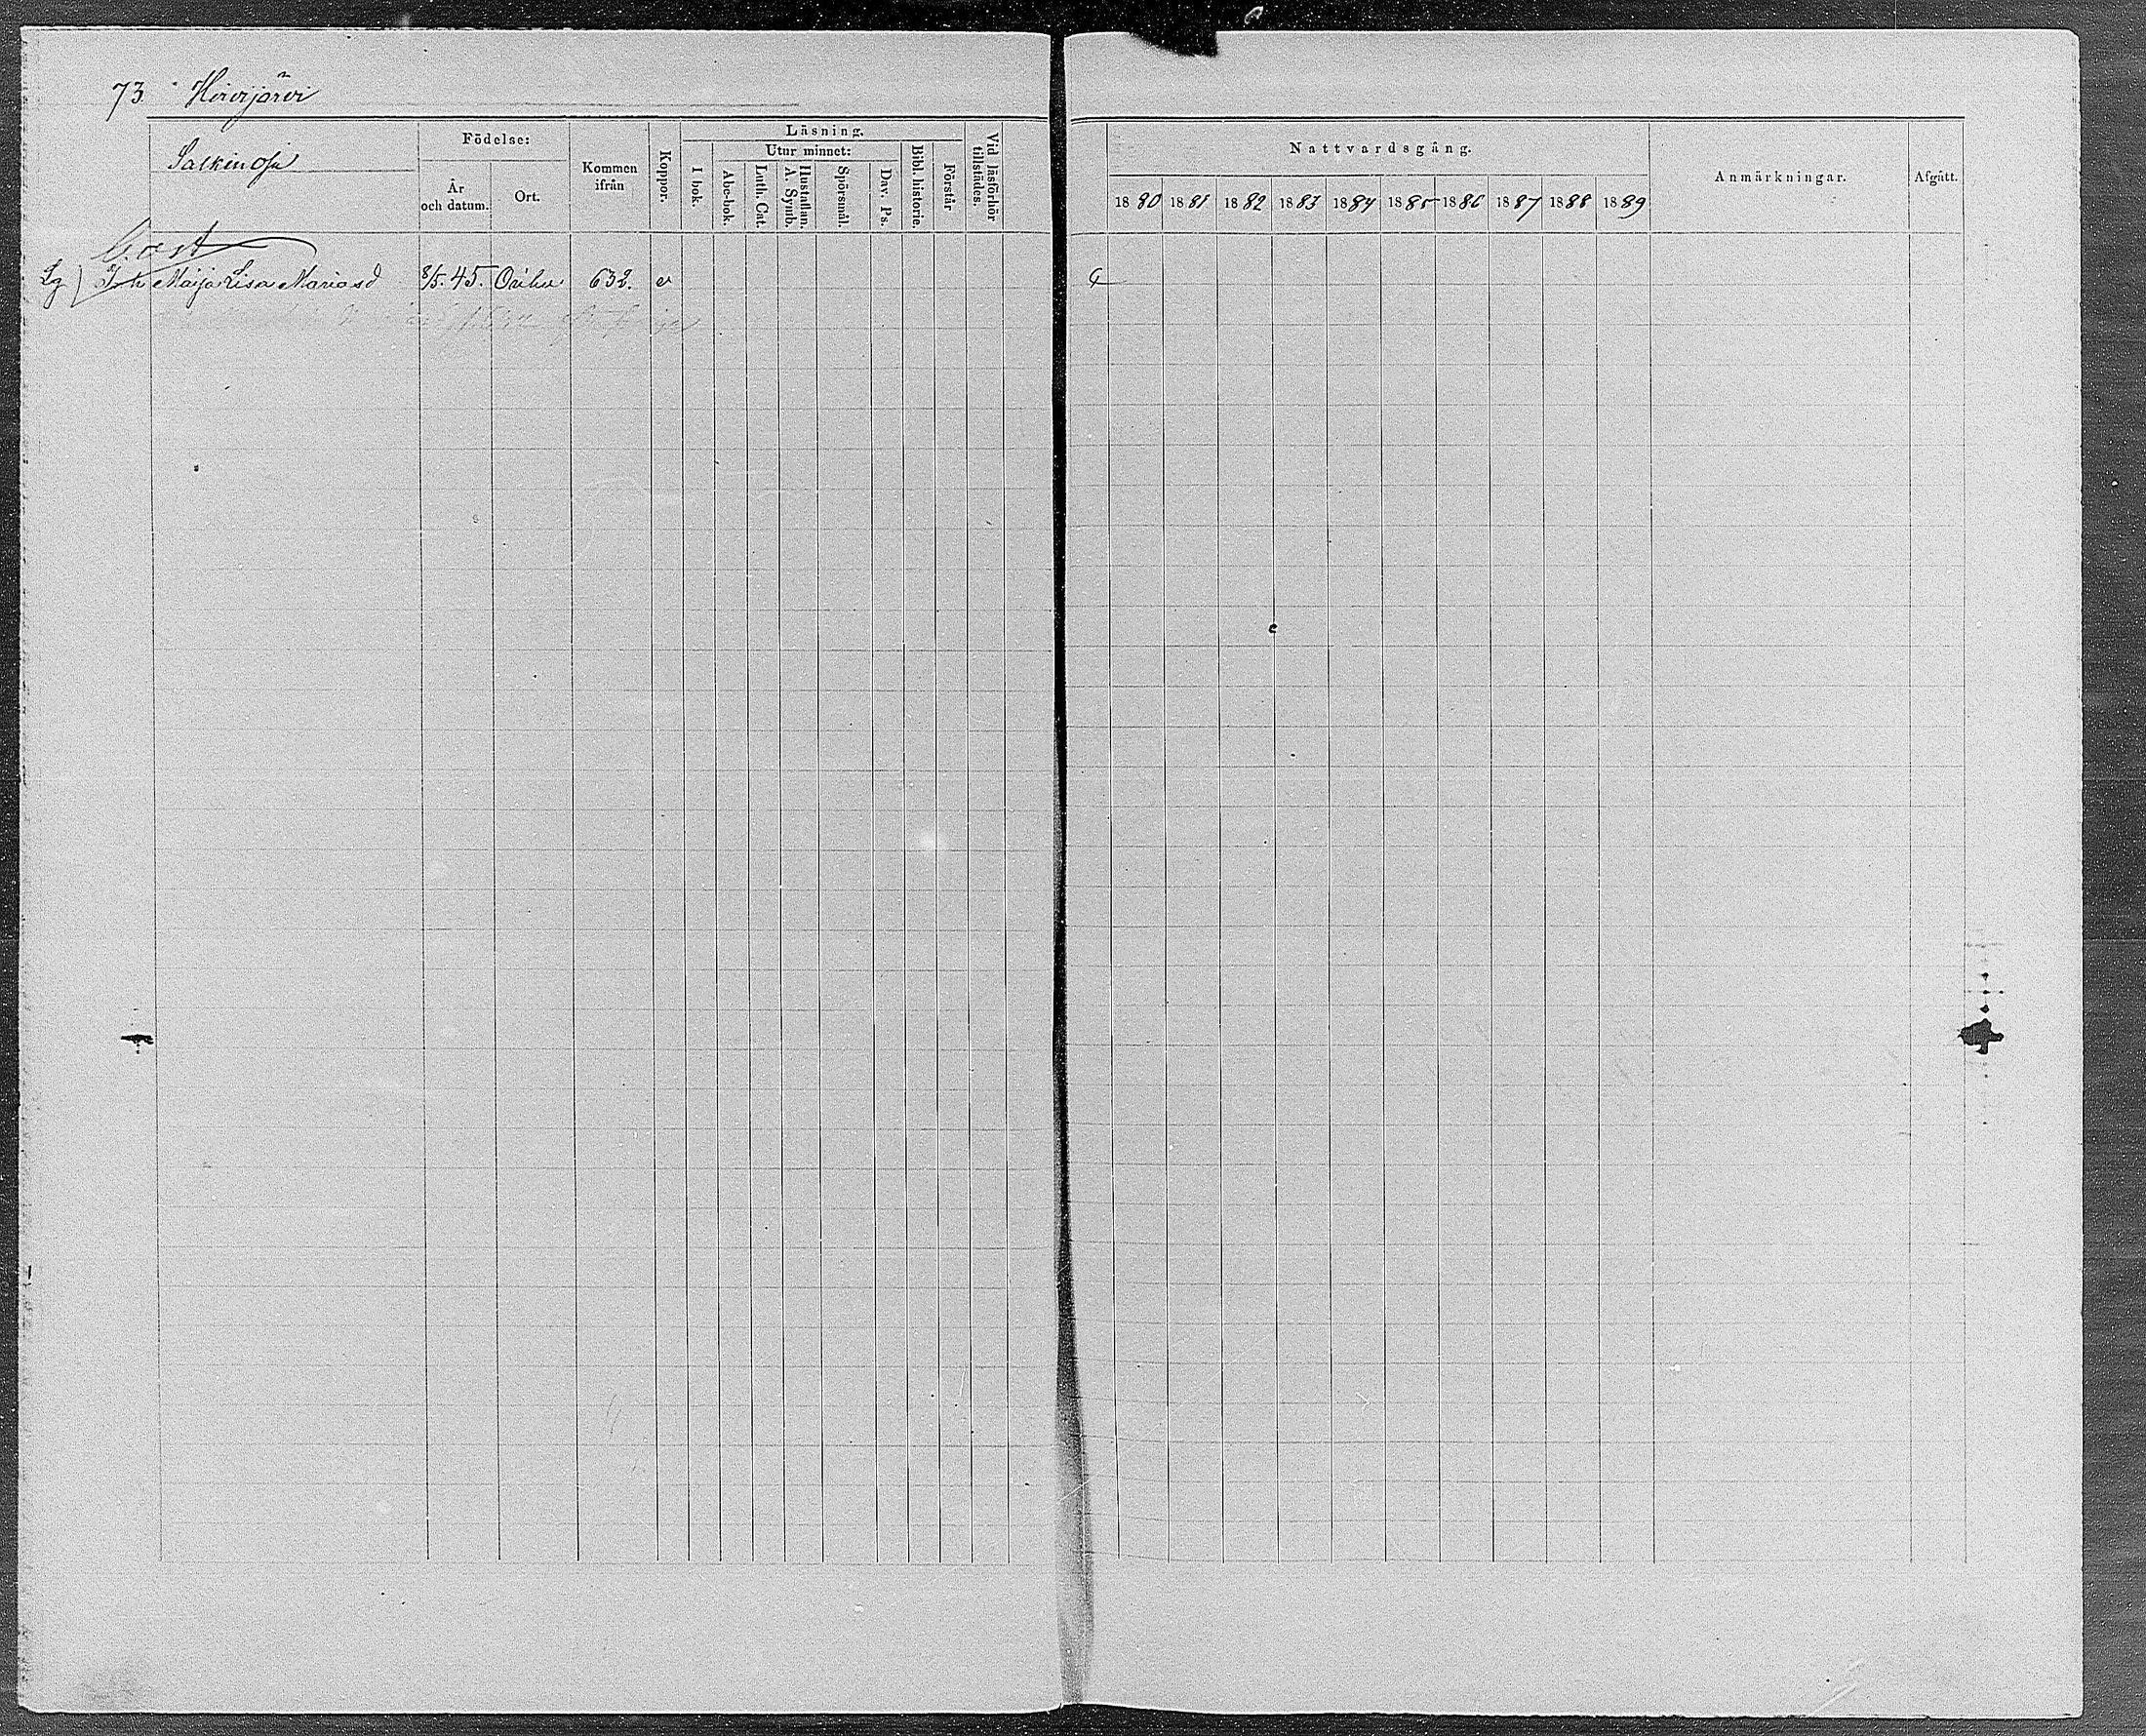 73. Hirvijärvi
Salkinoja
Födelse:
År och datum.
Ort.
Kommen ifrån
Koppor.
Läsning.
I bok.
Utur minnet:
Abc-bok.
Luth. Cat.
Hustaflan. A. Symb.
Spörsmål.
Dav. Ps.
Bibl. historie.
Förstår
Vid läsförhör tillstädes.
Nattvardsgång.
1880 1881 1882 1883 1884 1885 1886 1887 1888 1889
Anmärkningar.
Afgått.
Lg Maija Lisa Mariasd 8/5. 45. 632. v